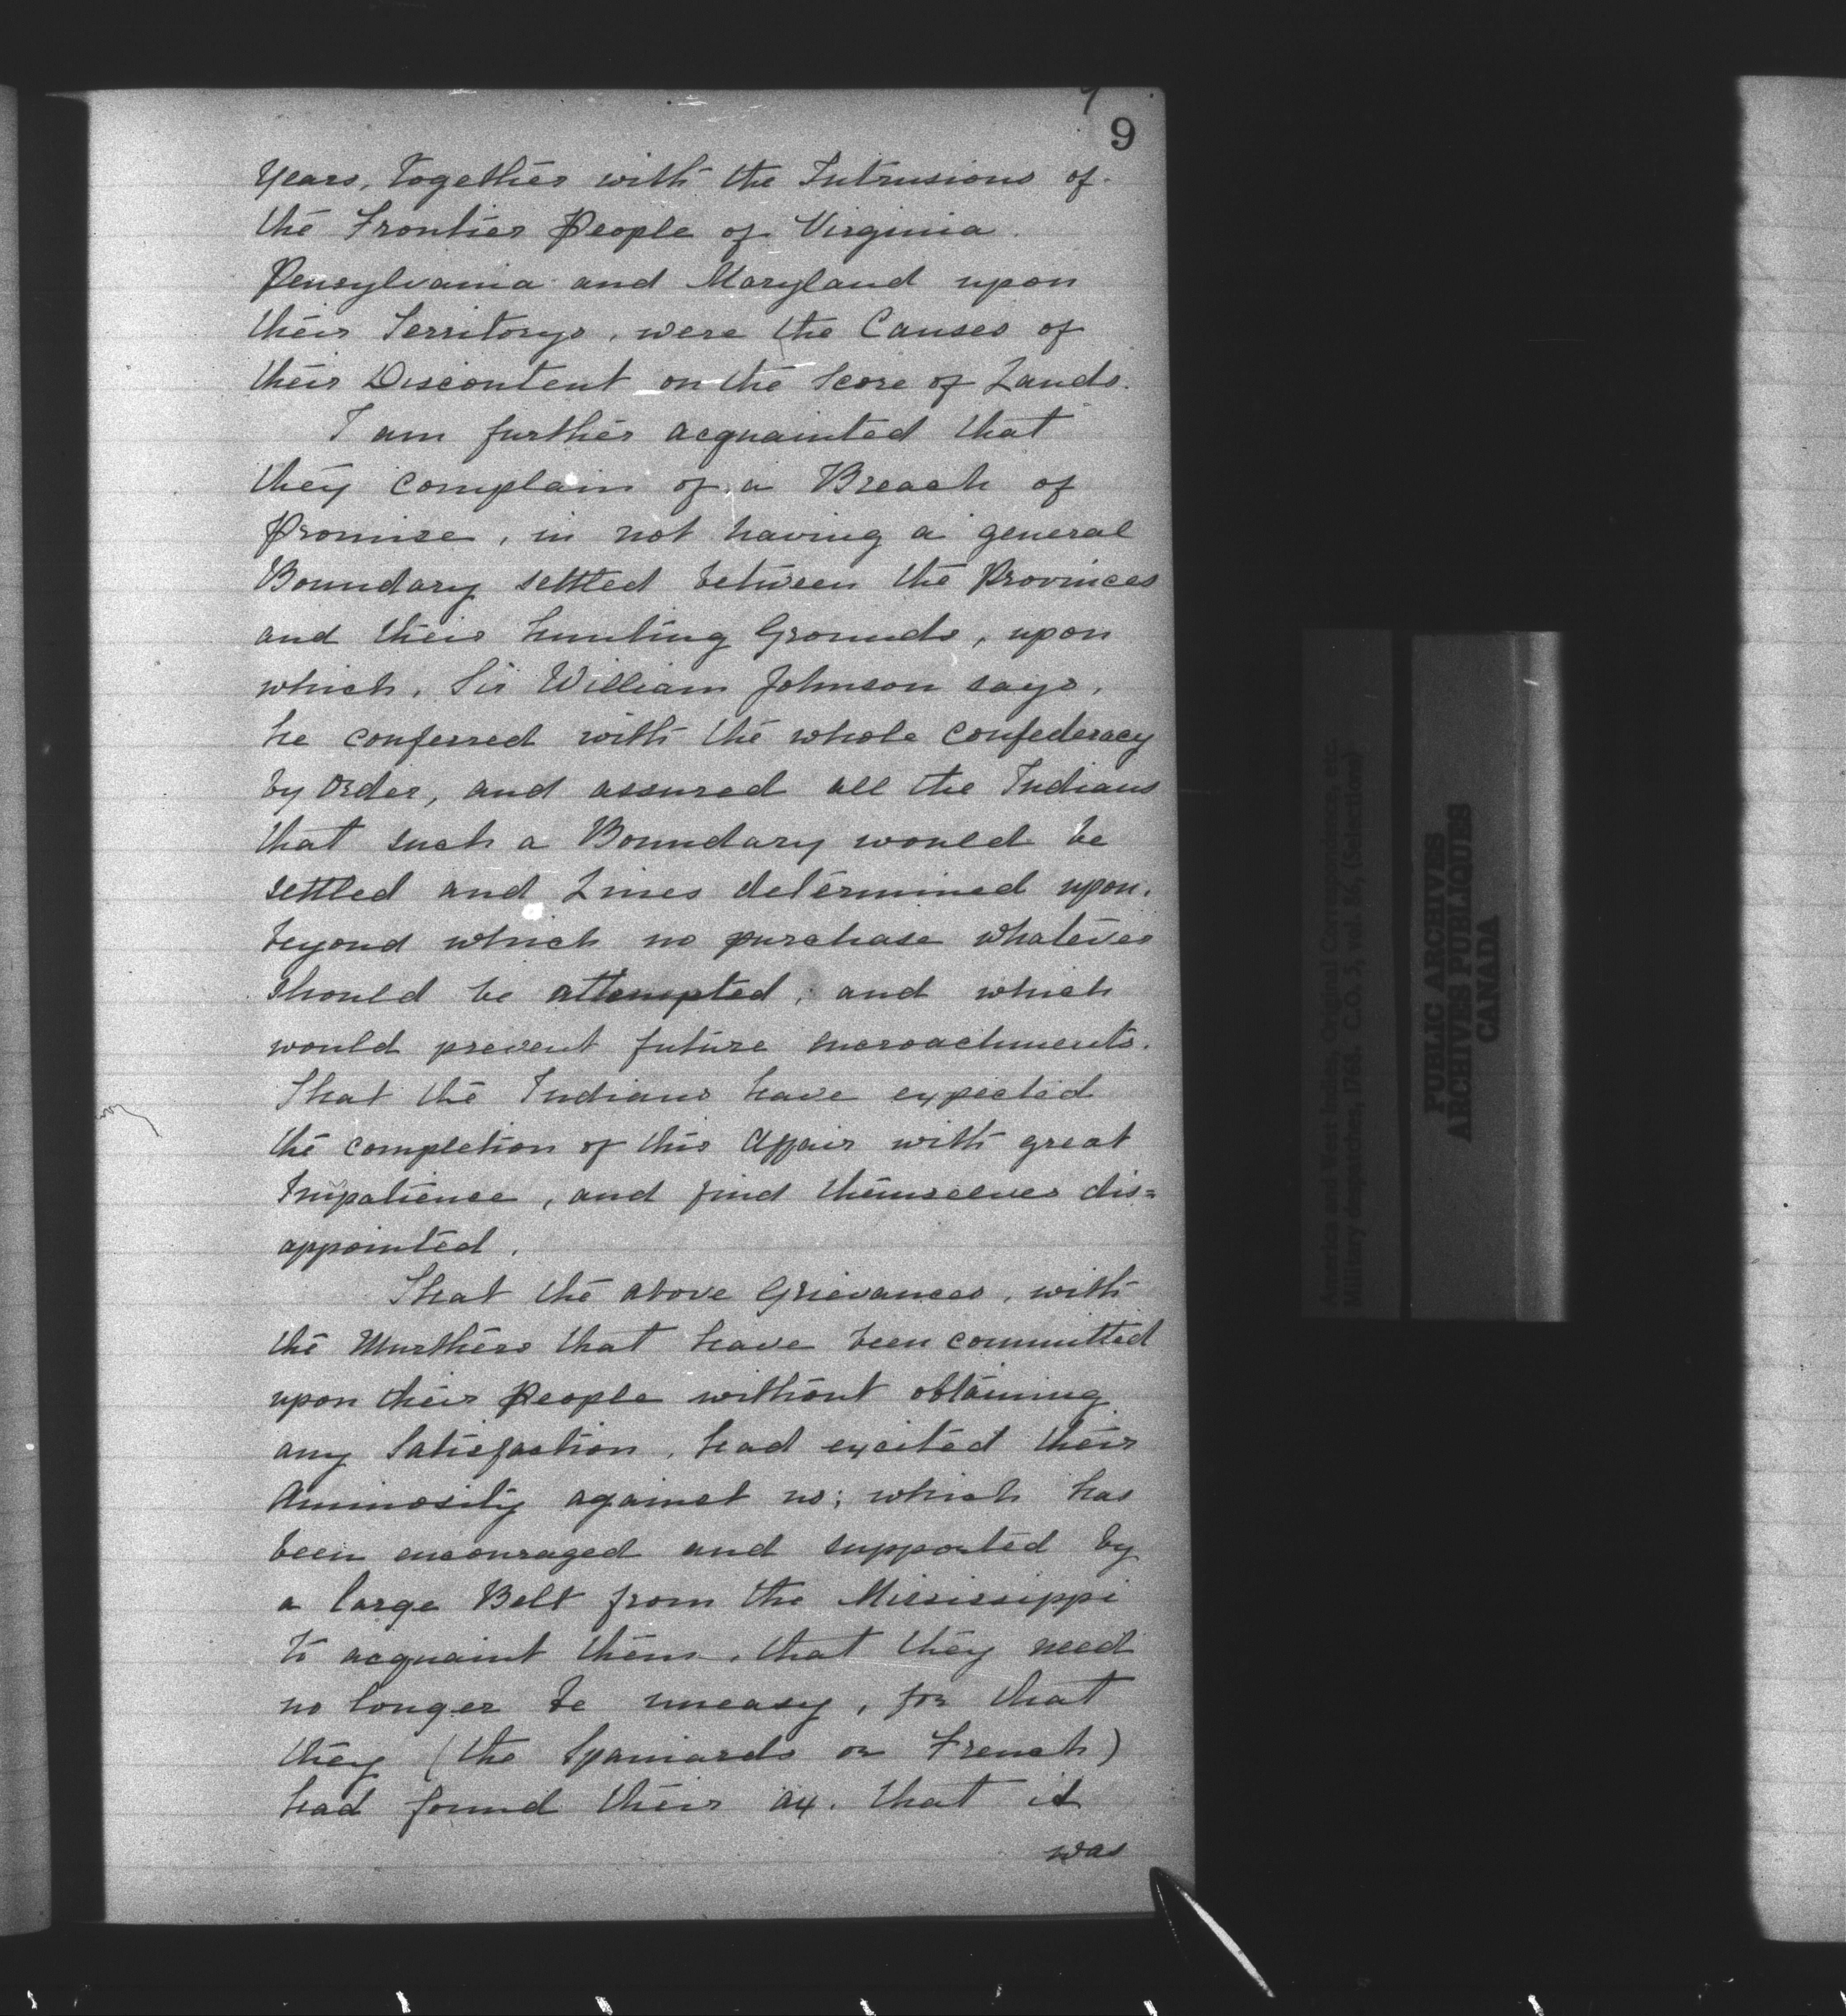 9
Years, together with the Intrusions of
the Frontier People of Virginia.
Pensylvania and Maryland upon
their Territorys, were the Causes of
their Discontent on the Score of Lands.
I am further acquainted that
they complain of a Breach of
Promise, in not having a general
Boundary settled between the Provinces
and their hunting Grounds, upon
which, Sir William Johnson says,
he conferred with the whole confederacy
by order, and assured all the Indians
that such a Boundary would be
settled and Lines determined upon,
beyond which no purchase whatever
should be attempted, and which
would prevent future encroachments.
That the Indians have expected
the completion of this Affair with great
Impatience, and find themselves dis=
appointed.
That the above Grievances, with
the Murthers that have been committed
upon their People without obtaining
any Satisfaction, had excited their
Annimosity against us; which has
been encouraged and supported by
a large Belt from the Mississippi
to acquaint them, that they need
no longer be uneasy, for that
they (the Spaniards or French)
had found their ax. that it
was
America and West Indies, Original Correspondence, etc.
Military despatches, 1768. C.O. 5, vol. 86, (Selections)
PUBLIC ARCHIVES
ARCHIVES PUBLIQUES
CANADA